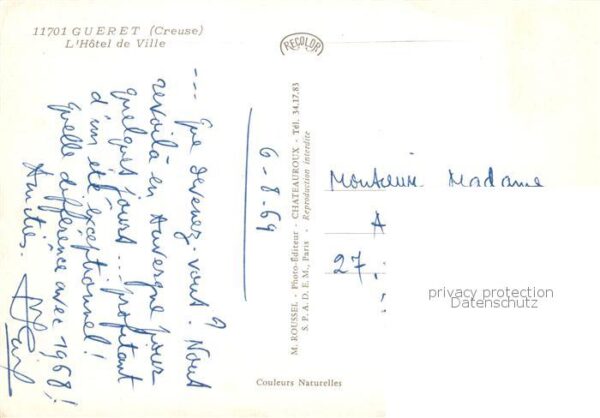 11701 GUERET (Creuse)
L'Hôtel de Ville
RECOLOR
--- Que devenez-vous? Nous
revoilà en Auvergne pour
quelques jours... profitant
d'un été exceptionnel!
quelle différence avec 1968!
Amitiés.
6-8-69
M. ROUSSEL - Photo-Éditeur - CHATEAUROUX - Tél. 34.17.83
S.P.A.D.E.M., Paris - Reproduction interdite
Monsieur Madame
A
27
privacy protection
Datenschutz
Couleurs Naturelles